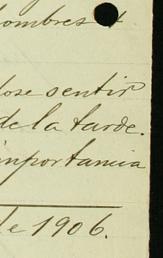 hombres
dose sentir
de la tarde.
importancia
de 1906.